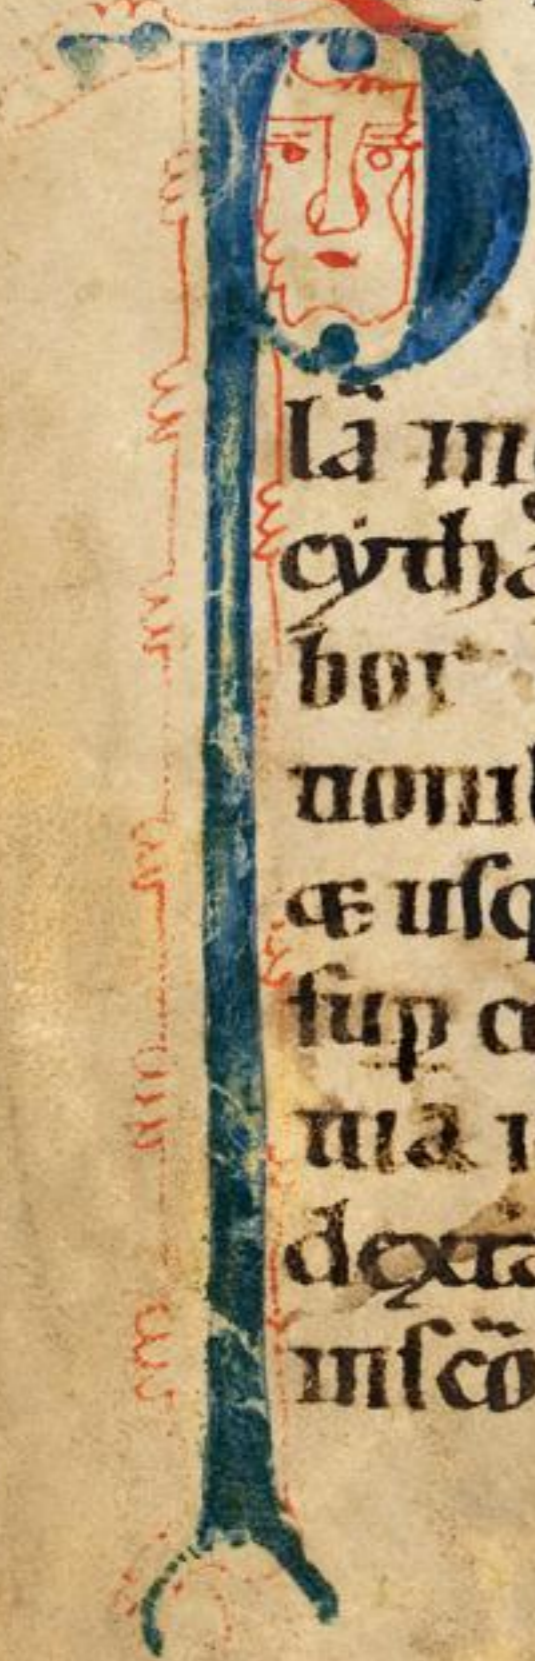 P
lā in
cẏtha
bor
nomi
æ uſq
ſup c
ma i
dexta
inſcō